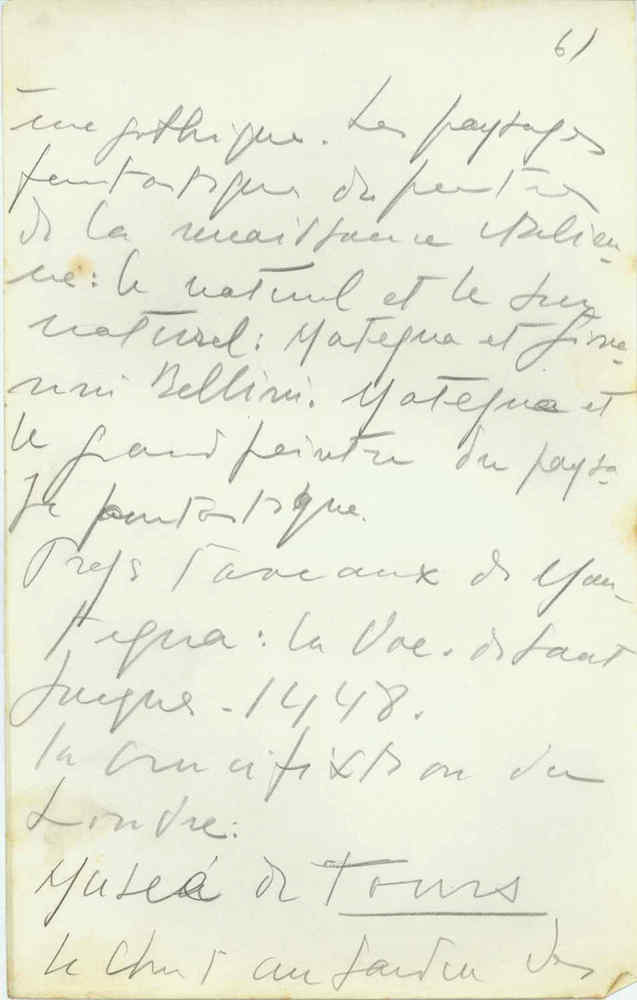 61
une gothique. Les paysages
fantastiques du peintres
de la renaissance italien-
ne: le naturel et le sur
naturel: Mategna et Giova-
nni Bellini. Mategna et
le grand peintre du paysa-
ge fantastique.
Treys taveaux de Man-
tegna: la Voc. de Saint
Jacques - 1448.
la Crucifixtion du
Louvre:
Museé de Tours
le Christ au Jardin des